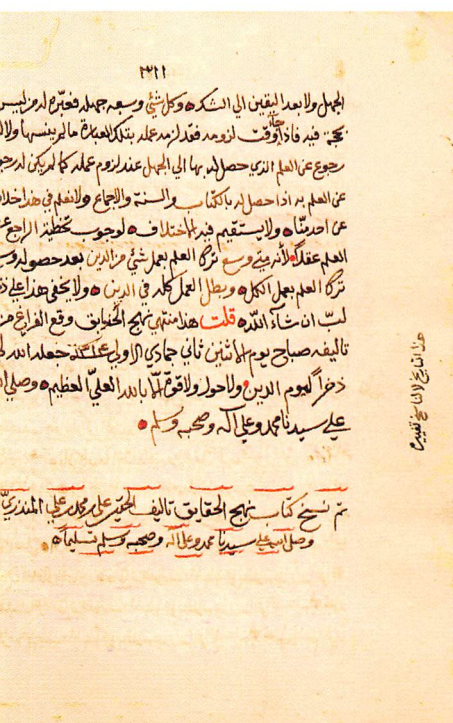 ٢٢١١
الجهل ولا بعد اليقين الي الشكره وكل شئي وسعه جهله فعبّره له من ليس
بحجة فيه فاذا وقت لزومه فقد لزمه عمله بتلك العبارة ما لم ينسها ولا
رجوع عن العلم الذي حصل له بها الي الجهل عند لزوم عمله كما لم يكن له
عن العلم به اذا حصل له بالكتاب والسنة والاجماع ولا نعلم في هذا
عن احد منا ولا يستقيم فيه الاختلاف لوجوب تخطية الراجع
العلم عقلا لأنه متي وسع ترك العلم بعمل شئي من الدين بعد حصوله
ترك العلم بعمل الكل وبطل العمل كله في الدين ولا يخفي هذا علي
لبّ ان شاء الله قلت هذا منتهي نهج الحقايق وقع الفراغ من
تاليفه صباح يوم الاثنين ثاني جمادي الاولي جعله الله
ذخراً ليوم الدين ولا حول ولا قوة الا بالله العليّ العظيم وصلي
علي سيدنا محمد وعلي آله وصحبه وسلم
تم نسخ كتاب نهج الحقايق تاليف علي بن محمد بن علي المنذريّ
وصلي الله علي سيدنا محمد وعلي آله وصحبه وسلم تسليماً
هذا التاريخ